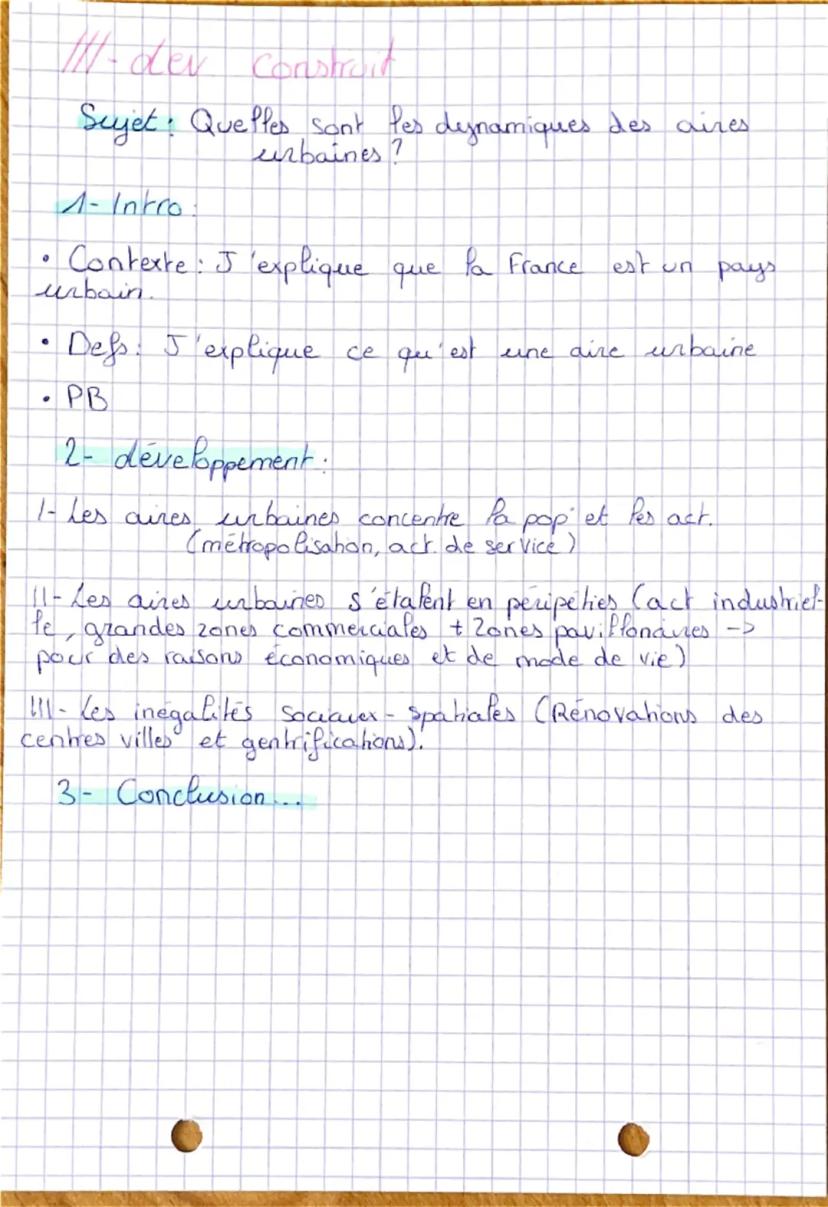 III- dev construit
Sujet : Quelles sont les dynamiques des aires
urbaines ?
1- Intro :
• Contexte : J'explique que la France est un pays
urbain.
• Defs : J'explique ce qu'est une aire urbaine
• PB
2- développement :
I- Les aires urbaines concentre la pop° et les act.
(métropolisation, act. de service)
II- Les aires urbaines s'étalent en péripéties (act industriel-
le, grandes zones commerciales + Zones pavillonaires ->
pour des raisons économiques et de mode de vie)
III- Les inégalités sociaux - spatiales (Rénovations des
centres villes et gentrifications).
3- Conclusion...